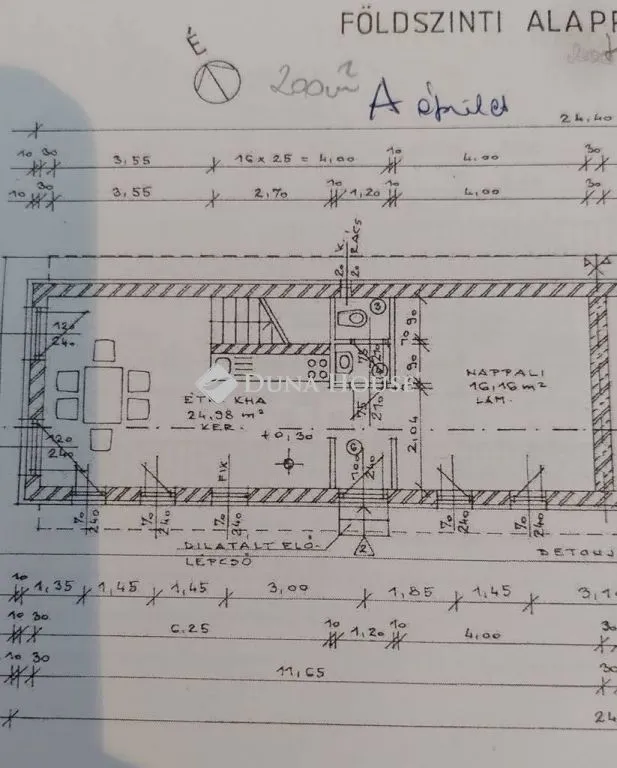 FÖLDSZINTI ALAP
É
200m²
A épület
24,40
10 30 3,55 16 x 25 = 4,00 10 4,00 30
10 30 3,55 2,70 10 1,20 10 4,00 30
K.
RÁCS
20 20
3
120
240
75
10 90
90
NAPPALI
16,16 m²
LAM.
ÉTK KHA
24,98 m²
KER.
DUNA HOUSE
75
210
2,04
120
240
+0,30
FIX
100
240
70
240
70
240
70
240
70
240
70
240
DILATÁLT ELŐ-
LÉPCSŐ
2
DETONJ
10 1,35 1,45 1,45 3,00 1,85 1,45 3,1
10 30 6,25 10 1,20 10 4,00 30
10 30 11,65 30
24